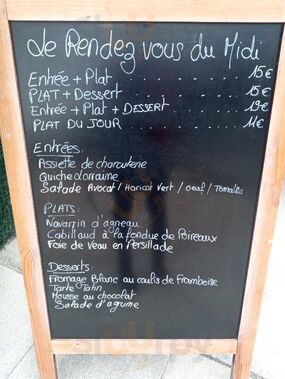 Le Rendez vous du Midi
Entrée + Plat . . . . . . . 15€
PLAT + Dessert . . . . . 15€
Entrée + Plat + DESSERT . . . . 19€
PLAT DU JOUR . . . . 11€
ENTRÉES:
Assiette de charcuterie
Quiche Lorraine
Salade Avocat / Haricot Vert / oeuf / Tomates
PLATS:
Navarrin d'agneau
Cabillaud à la fondue de Poireaux
Foie de Veau en Persillade
Desserts:
Fromage Blanc au coulis de Framboise
Tarte Tatin
Mousse au chocolat
Salade d'agrume